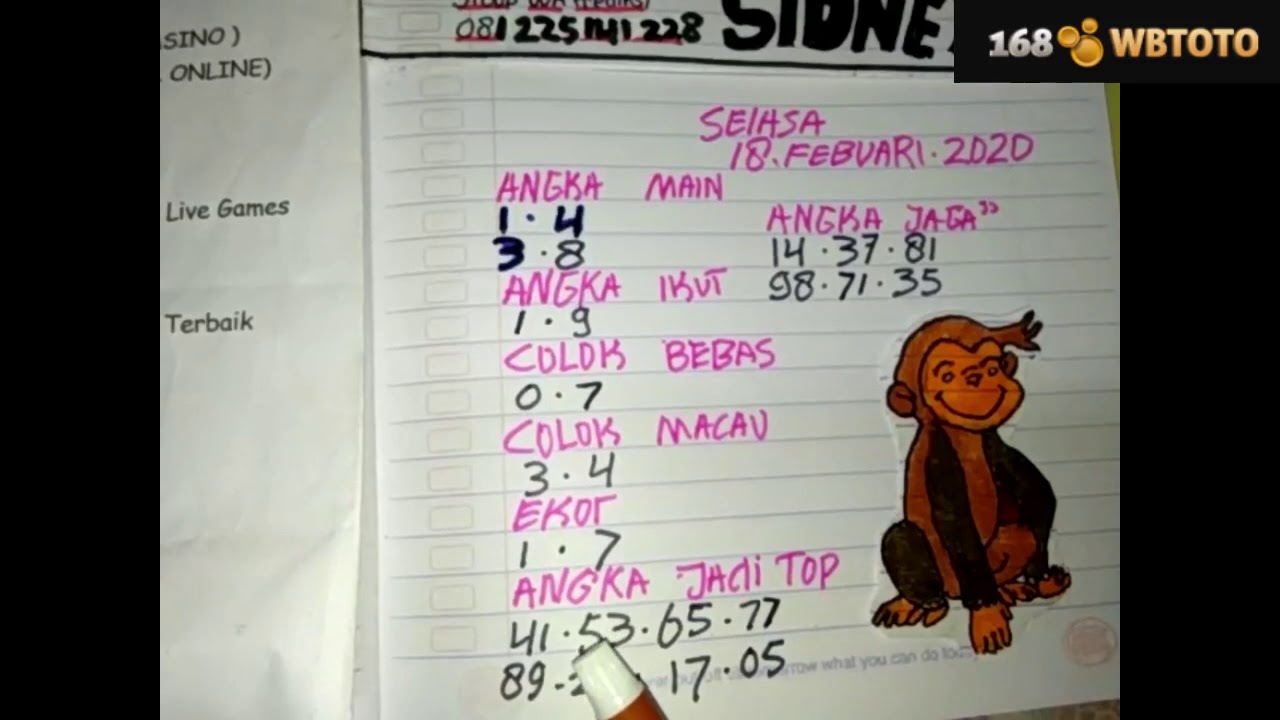 168 WBTOTO
SINO )
ONLINE)
Live Games
Terbaik
081225141228
SIDNE
SElASA
18.FEBUARI.2020
ANGKA MAIN
1.4
3.8
ANGKA JAGA"
14.37.81
98.71.35
ANGKA IKUT
1.9
COLOK BEBAS
0.7
COLOK MACAU
3.4
EKOR
1.7
ANGKA JAdi TOP
41.53.65.77
89. 17.05
what you can do